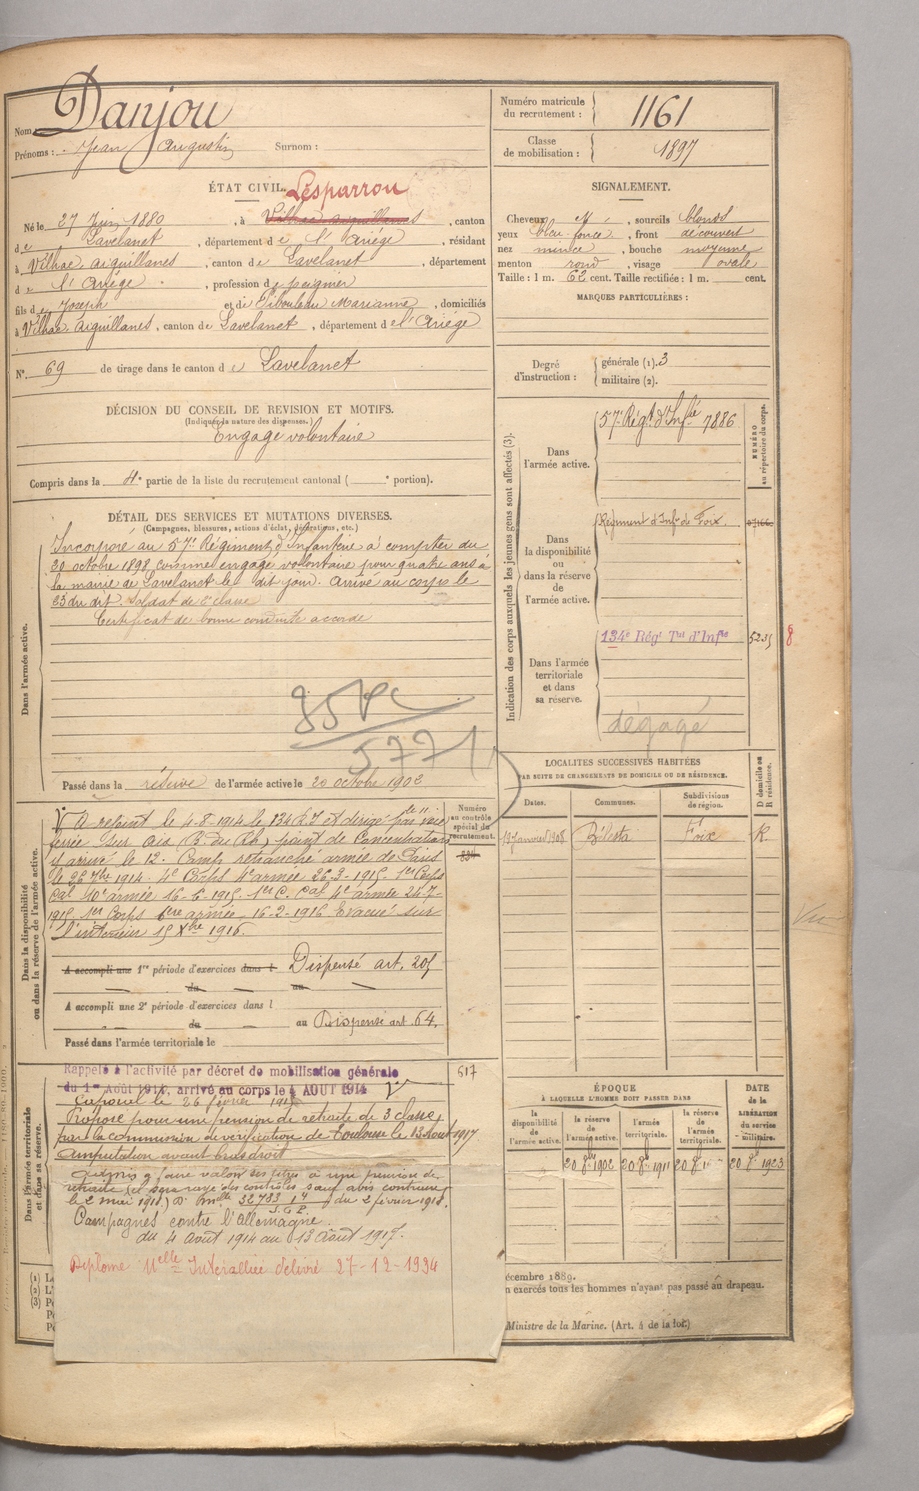 Nom Danjou
Prénoms : Jean Augustin Surnom :
Numéro matricule du recrutement : 1161
Classe de mobilisation : 1897
ÉTAT CIVIL. Lesparrou
Né le 27 Juin 1880 , à Vilhac aiguillanes , canton
de Lavelanet , département de l'Ariège , résidant
à Vilhac aiguillanes , canton de Lavelanet , département
de l'Ariège , profession de peignier
fils de Joseph et de Marianne , domiciliés
à Vilhac Aiguillanes , canton de Lavelanet , département de l'Ariège
N° 69 de tirage dans le canton de Lavelanet
DÉCISION DU CONSEIL DE REVISION ET MOTIFS.
(Indiquer la nature des dispenses.)
Engagé volontaire
Compris dans la 4e partie de la liste du recrutement cantonal ( e portion).
DÉTAIL DES SERVICES ET MUTATIONS DIVERSES.
(Campagnes, blessures, actions d'éclat, décorations, etc.)
Dans l'armée active.
Incorporé au 57e Régiment d'Infanterie à compter du
20 octobre 1898 comme engagé volontaire pour quatre ans à
la mairie de Lavelanet le dit jour. Arrivé au corps le
23 du dit. Soldat de 2e classe
Certificat de bonne conduite accordé
5771
Passé dans la réserve de l'armée active le 20 octobre 1902
Dans la disponibilité ou dans la réserve de l'armée active.
Numéro au contrôle spécial du recrutement.
A rejoint le 4-8-1914 le 134 R.I et dirigé par voie
ferrée sur Aix (B. du Rh) point de Concentration
y arrive le 12. Camp retranché armée de Paris
le 26 7bre 1914. 4e armée 26-3-1915 1er Corps
Cal 10e armée 16-6-1915. 1er C. Cal 4e armée 24-7-
1915 1er Corps 6ere armée 16-2-1916 Evacué sur
l'intérieur 15 Xbre 1916.
A accompli une 1re période d'exercices dans l Dispensé art. 205
du au
A accompli une 2e période d'exercices dans l
du au Dispensé art 64.
Passé dans l'armée territoriale le
Dans l'armée territoriale et dans sa réserve.
Rappelé à l'activité par décret de mobilisation générale
du 1er Août 1914, arrivé au corps le 4 AOUT 1914
517
Caporal le 26 février 1915
Proposé pour une pension de retraite de 3 classe,
par la commission de vérification de Toulouse le 13 Aout 1917
amputation avant bras droit
Admis à faire valoir ses titres à une pension de
retraite (et sera rayé des contrôles sauf avis contraire
le 2 mai 1918) D. Mlle 32783 1 4 du 2 février 1918.
S.G.P.
Campagnes contre l'Allemagne.
du 4 Août 1914 au 13 Août 1917.
Diplôme Melle Interalliée délivré 27-12-1934
SIGNALEMENT.
Cheveux et , sourcils blonds
yeux bleu foncé , front découvert
nez mince , bouche moyenne
menton rond , visage ovale
Taille : 1 m. 62 cent. Taille rectifiée : 1 m. cent.
MARQUES PARTICULIÈRES :
Degré d'instruction : générale (1). 3
militaire (2).
Indication des corps auxquels les jeunes gens sont affectés (3).
NUMÉRO au répertoire du corps.
Dans l'armée active.
57e Régt d'Infie 7886
Dans la disponibilité ou dans la réserve de l'armée active.
Régiment d'Infie de Foix.
Dans l'armée territoriale et dans sa réserve.
134e Régt Tal d'Infie
dégagé
LOCALITÉS SUCCESSIVES HABITÉES
PAR SUITE DE CHANGEMENTS DE DOMICILE OU DE RÉSIDENCE.
Dates. Communes. Subdivisions de région. D domicile ou R résidence.
19 janvier 1908 Bélesta Foix R.
ÉPOQUE
À LAQUELLE L'HOMME DOIT PASSER DANS
DATE de la LIBÉRATION du service militaire.
la disponibilité de l'armée active.
la réserve de l'armée active.
l'armée territoriale.
la réserve de l'armée territoriale.
20 8bre 1902 20 8re 1911 20 8re 20 8re 1923
écembre 1889.
n exercés tous les hommes n'ayant pas passé au drapeau.
Ministre de la Marine. (Art. 4 de la loi.)